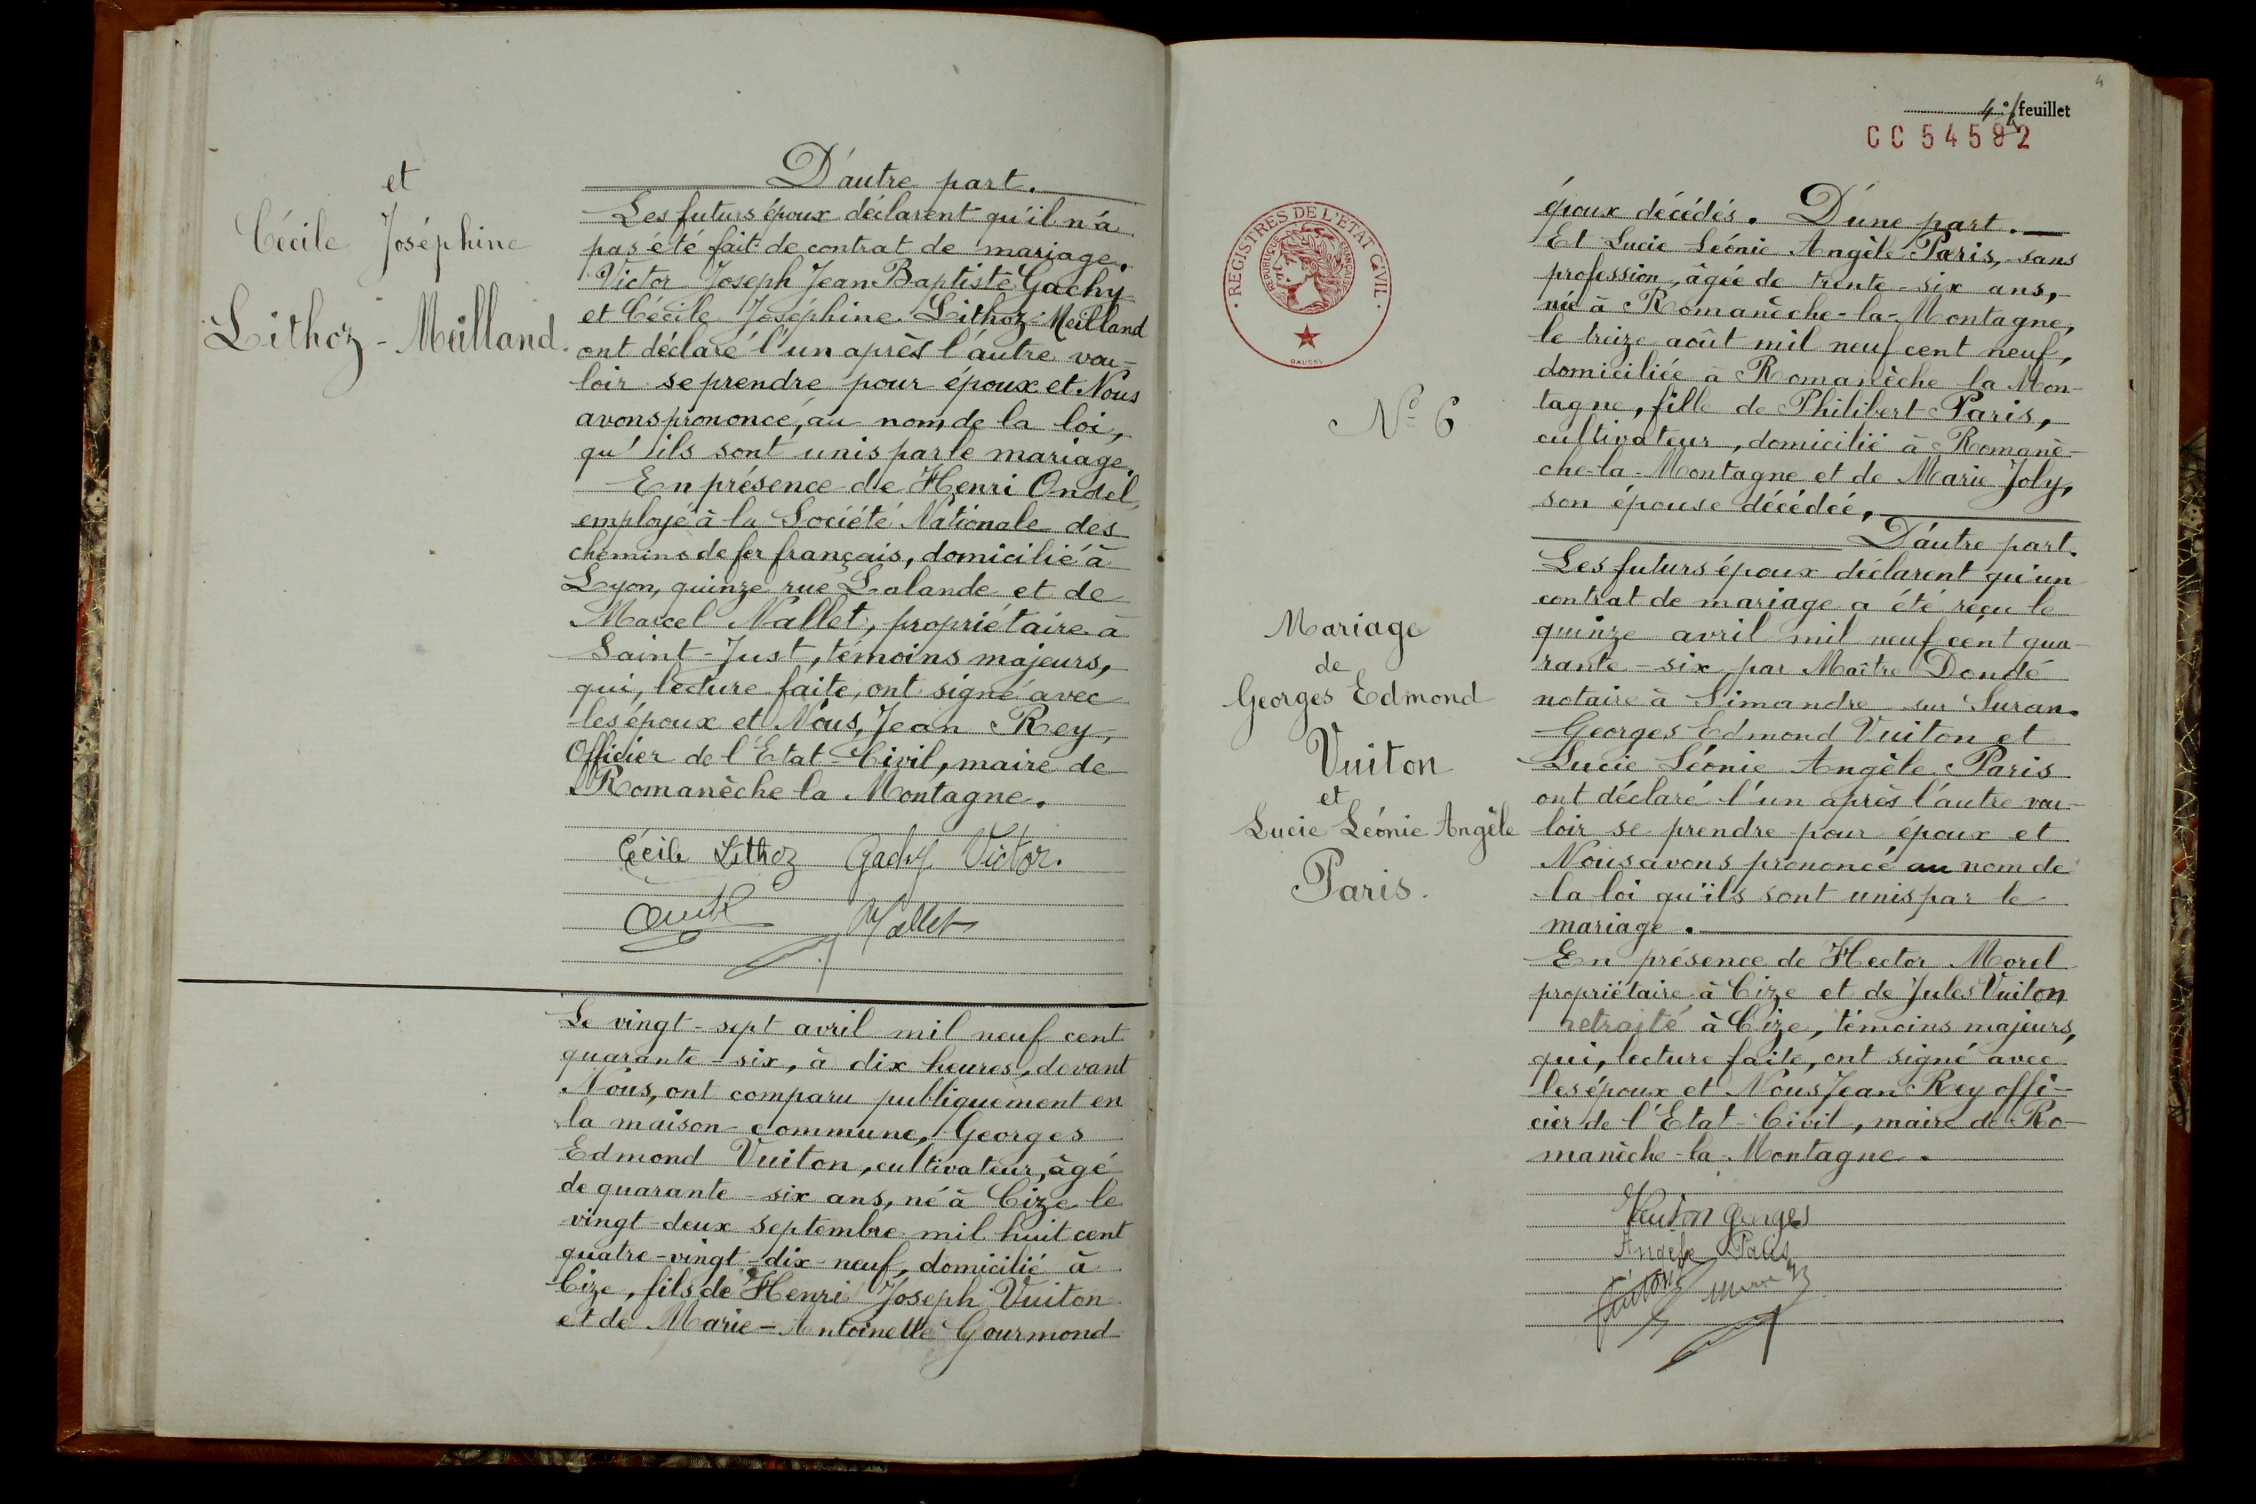 et
Cécile Joséphine
Lithoz-Meilland.
D'autre part.
Les futurs époux déclarent qu'il n'a
pas été fait de contrat de mariage.
Victor Joseph Jean Baptiste Gachy
et Cécile Joséphine Lithoz-Meilland
ont déclaré l'un après l'autre vou-
loir se prendre pour époux et Nous
avons prononcé, au nom de la loi,
qu'ils sont unis par le mariage.
En présence de Henri Ondel,
employé à la Société Nationale des
chemins de fer français, domicilié à
Lyon, quinze rue Lalande et de
Marcel Nallet, propriétaire à
Saint-Just, témoins majeurs,
qui, lecture faite, ont signé avec
les époux et Nous, Jean Rey,
Officier de l'Etat-Civil, maire de
Romanèche la Montagne.
Cécile Lithoz Gachy Victor.
Nallet
Le vingt-sept avril mil neuf cent
quarante-six, à dix heures, devant
Nous, ont comparu publiquement en
la maison commune, Georges
Edmond Vuiton, cultivateur, âgé
de quarante-six ans, né à Cize le
vingt-deux septembre mil huit cent
quatre-vingt-dix-neuf, domicilié à
Cize, fils de Henri Joseph Vuiton
et de Marie-Antoinette Gourmond
4
4e feuillet
CC 54592
REGISTRES DE L'ETAT CIVIL
REPUBLIQUE FRANÇAISE
No 6
Mariage
de
Georges Edmond
Vuiton
et
Lucie Léónie Angèle
Paris.
époux décédés. D'une part.
Et Lucie Léónie Angèle Paris, sans
profession, âgée de trente-six ans,
née à Romanèche-la-Montagne,
le treize août mil neuf cent neuf,
domiciliée à Romanèche la Mon-
tagne, fille de Philibert Paris,
cultivateur, domicilié à Romanè-
che-la-Montagne et de Marie Joly,
son épouse décédée,
D'autre part.
Les futurs époux déclarent qu'un
contrat de mariage a été reçu le
quinze avril mil neuf cent qua-
rante-six par Maître Dondé
notaire à Simandre sur Suran.
Georges Edmond Vuiton et
Lucie Léónie Angèle Paris
ont déclaré l'un après l'autre vou-
loir se prendre pour époux et
Nous avons prononcé au nom de
la loi qu'ils sont unis par le
mariage.
En présence de Hector Morel
propriétaire à Cize et de Jules Vuiton
retraité à Cize, témoins majeurs,
qui, lecture faite, ont signé avec
les époux et Nous Jean Rey offi-
cier de l'Etat-Civil, maire de Ro-
manèche-la-Montagne.
Vuiton Georges
Angèle Paris